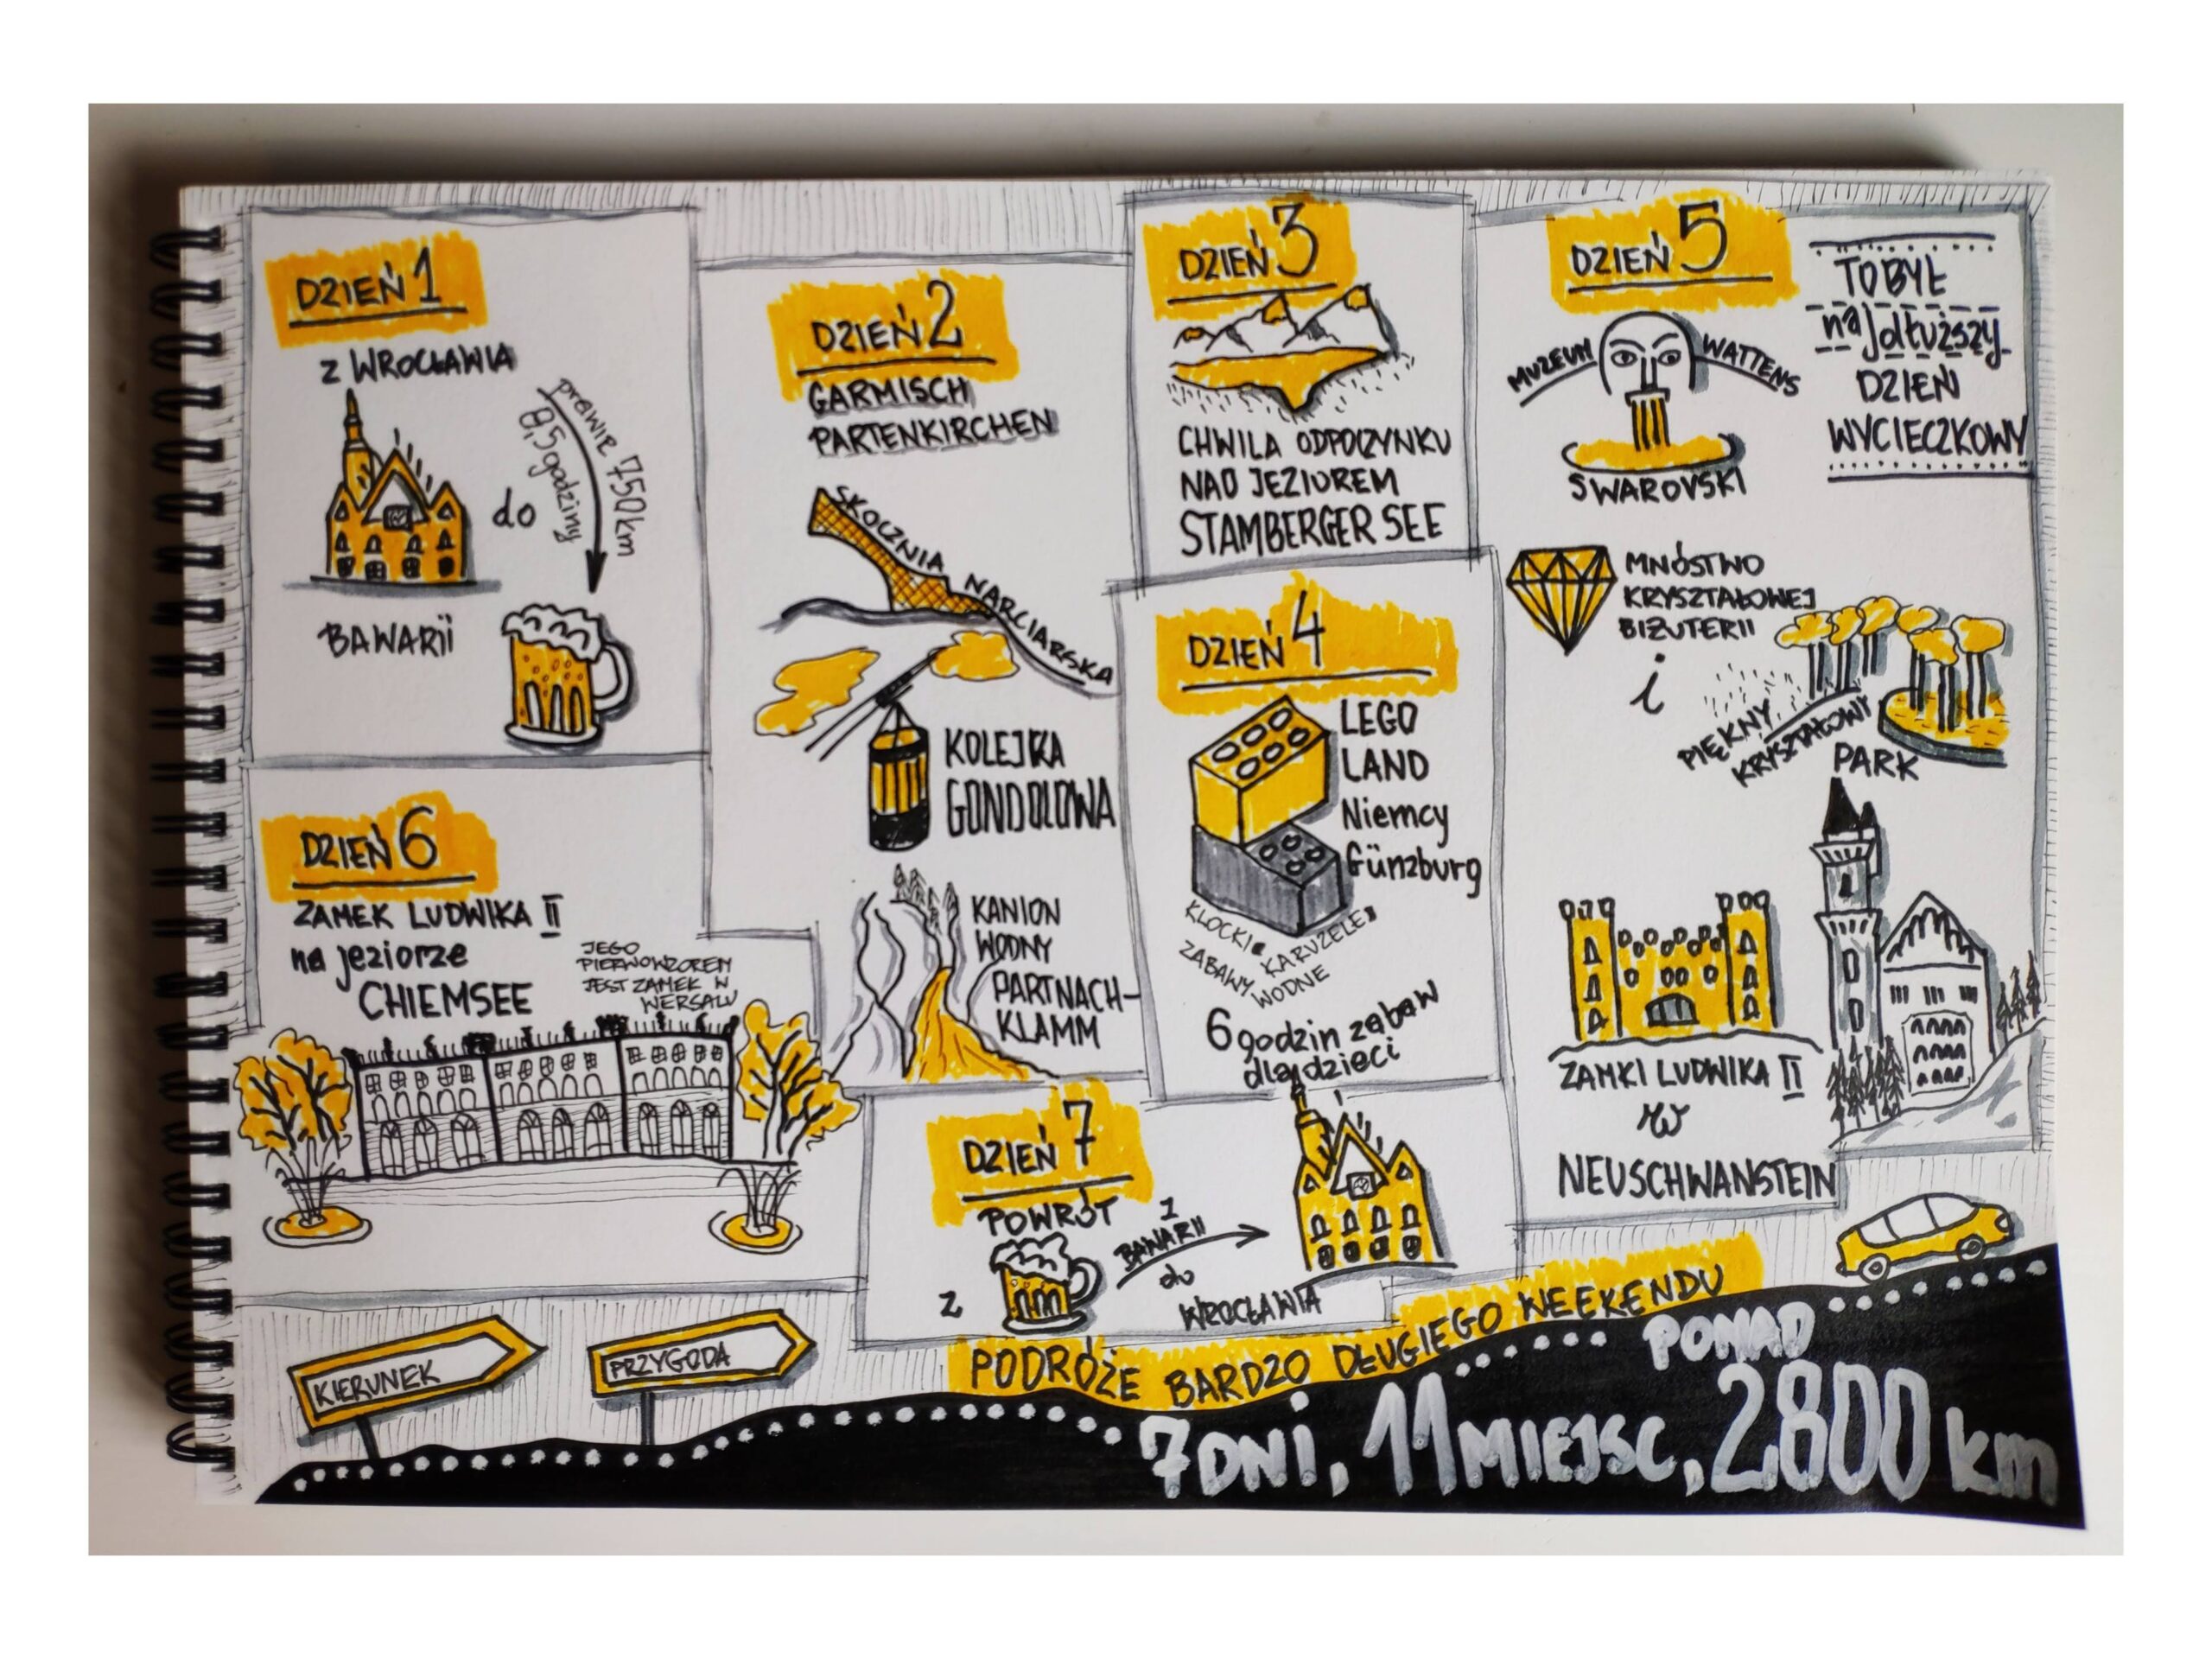 DZIEŃ 1
z WROCŁAWIA
do
prawie 750 km
8,5 godziny
BAWARII
DZIEŃ 2
GARMISCH
PARTENKIRCHEN
SKOCZNIA NARCIARSKA
KOLEJKA
GONDOLOWA
KANION
WODNY
PARTNACH-
KLAMM
DZIEŃ 3
CHWILA ODPOCZYNKU
NAD JEZIOREM
STAMBERGER SEE
DZIEŃ 4
LEGO
LAND
Niemcy
Günzburg
KLOCKI KARUZELE
ZABAWY WODNE
6 godzin zabaw
dla dzieci
DZIEŃ 5
TO BYŁ
najdłuższy
DZIEŃ
WYCIECZKOWY
MUZEUM WATTENS
SWAROVSKI
MNÓSTWO
KRYSZTAŁOWEJ
BIŻUTERII
i
PIĘKNY
KRYSZTAŁOWY
PARK
ZAMKI LUDWIKA II
w
NEUSCHWANSTEIN
DZIEŃ 6
ZAMEK LUDWIKA II
na jeziorze
CHIEMSEE
JEGO
PIERWOWZOREM
JEST ZAMEK W
WERSALU
DZIEŃ 7
POWRÓT
z
Z
BAWARII
do
WROCŁAWIA
KIERUNEK
PRZYGODA
PODRÓŻE BARDZO DŁUGIEGO WEEKENDU
PONAD
7 DNI, 11 MIEJSC, 2800 km